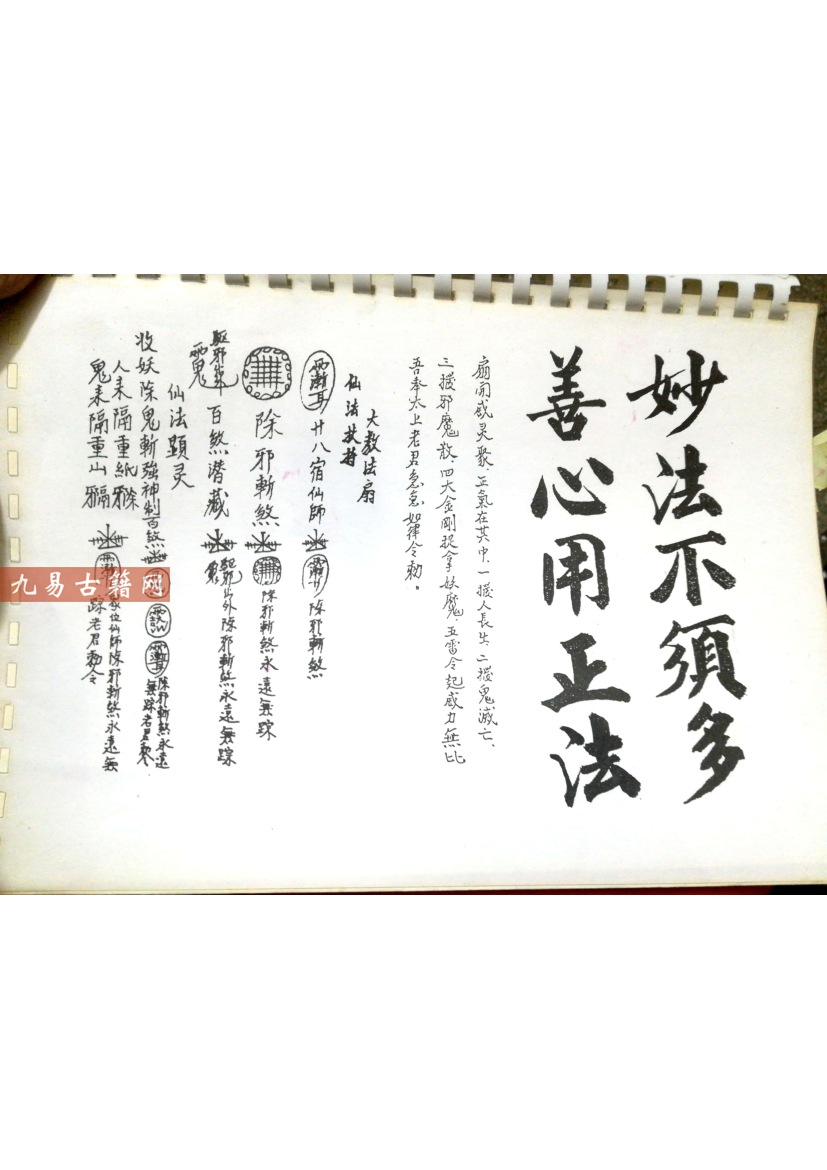 妙法不須多
善心用正法
扇開威灵聚、正氣在其中、一搧人長生、二搧鬼滅亡、
三搧邪魔散、四大金剛捉拿妖魔、五雷令起威力無比
吾奉太上老君急急如律令勅。
大教法扇
仙法扶持
廿八宿仙師
除邪斬煞
除邪斬煞
除邪斬煞永遠無踪
百煞潜藏
除邪斬煞永遠無踪
仙法顕灵
收妖除鬼斬強神制百煞
除邪斬煞永遠
無踪老君勅令
人来隔重紙
鬼来隔重山
位仙師除邪斬煞永遠無
踪老君勅令
九易古籍网